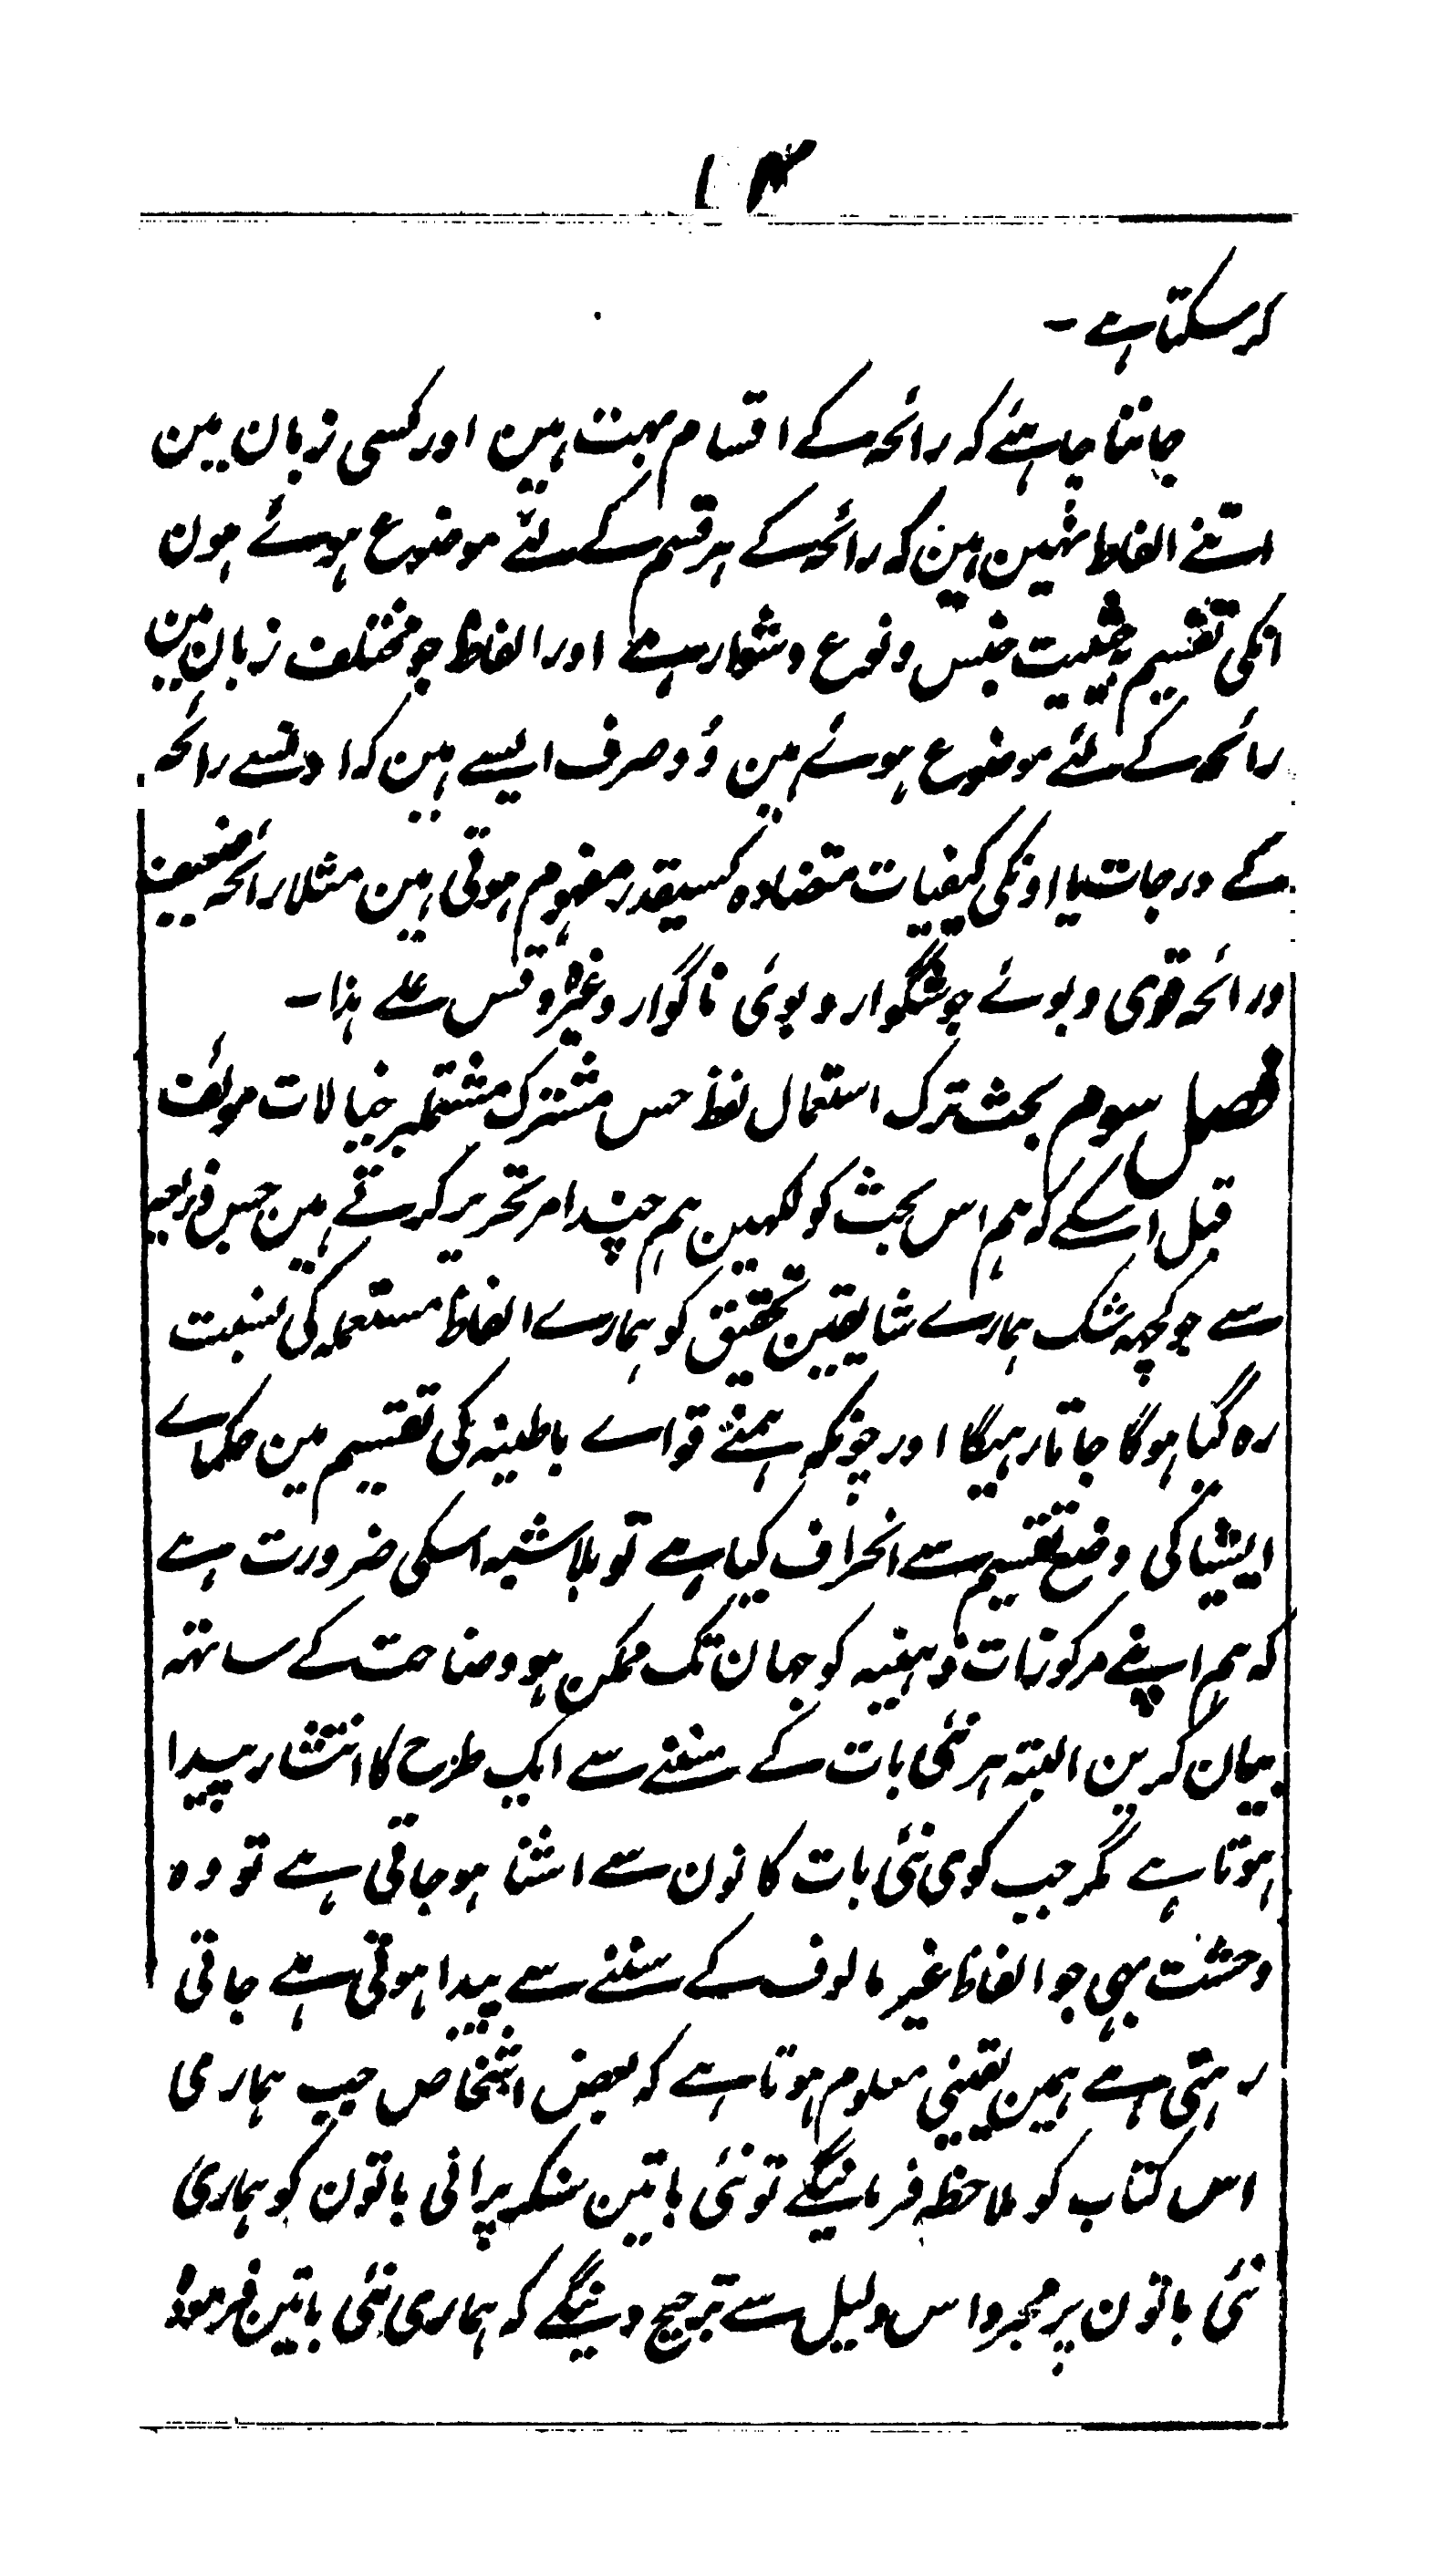 ۱۴
کر سکتا ہے ۔
جاننا چاہئے کہ رائحہ کے اقسام بہت ہین اور کسی زبان مین
اتنے الفاظ نہین ہین کہ رائحہ کے ہر قسم کے لئے موضوع ہوئے ہون
انکی تقسیم بحیثیت جنس و نوع دشوار ہے اور الفاظ جو مختلف زبان مین
رائحہ کے لئے موضوع ہوئے ہین وُہ صرف ایسے ہین کہ اونسے رائحہ
کے درجات یا اونکی کیفیات متضادہ کسیقدر مفہوم ہوتی ہین مثلا رائحہ ضعیف
ورائحہ قوی و بوئے خوشگوار و بوئی ناگوار وغیرہ وقس علے ہذا ۔
فصل سوم بحث ترک استعمال لفظ حس مشترک مشتملبر خیالات مولف
قبل اسکے کہ ہم اس بحث کو لکہین ہم چند امر تحریر کرتے ہین جس ذریعہ
سے جو کچہہ شک ہمارے شایقین تحقیق کو ہمارے الفاظ مستعملہ کی نسبت
رہ گیا ہوگا جاتا رہیگا اور چونکہ ہمنے قواے باطینہ کی تقسیم مین حکماے
ایشیا کی وضع تقسیم سے انحراف کیا ہے تو بلا شبہ اسکی ضرورت ہے
کہ ہم اپنے مرکوزات ذہنیہ کو جہان تک ممکن ہو وضاحت کے ساتہہ
بیان کرین البتہ ہر نئی بات کے سننے سے ایک طرح کا انتشار پیدا
ہوتا ہے مگر جب کوی نئی بات کانون سے اشنا ہو جاتی ہے تو وہ
وحشت بہی جو الفاظ غیر مالوف کے سننے سے پیدا ہوتی ہے جاتی
رہتی ہے ہمین یقینی معلوم ہوتا ہے کہ بعض اشخاص جب ہماری
اس کتاب کو ملاحظہ فرمائینگے تو نئی باتین سنکر پرانی باتون کو ہماری
نئی باتون پر مجرد اس دلیل سے ترجیح دینگے کہ ہماری نئی باتین فرمودہ